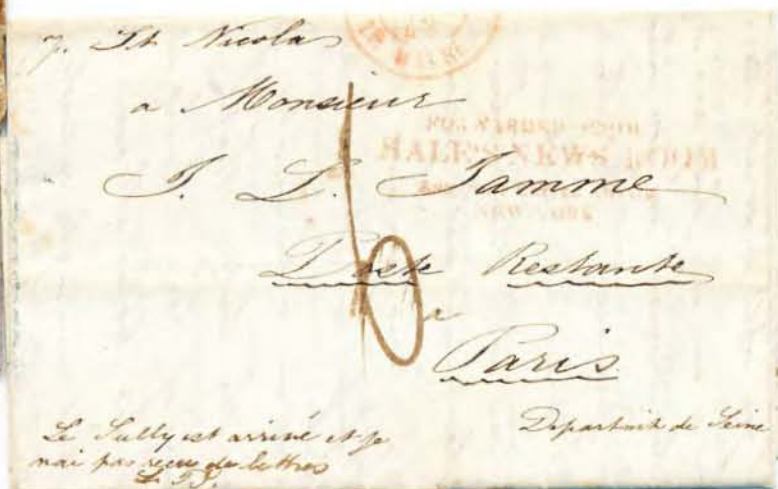 p. St Nicolas
a Monsieur
FORWARDED FROM
HALE'S NEWS ROOM
J. L. Tamme
NEW-YORK
Poste Restante
a
Paris
Departmt de Seine
Le Sully est arrivé et je
nai pas reçu de lettres